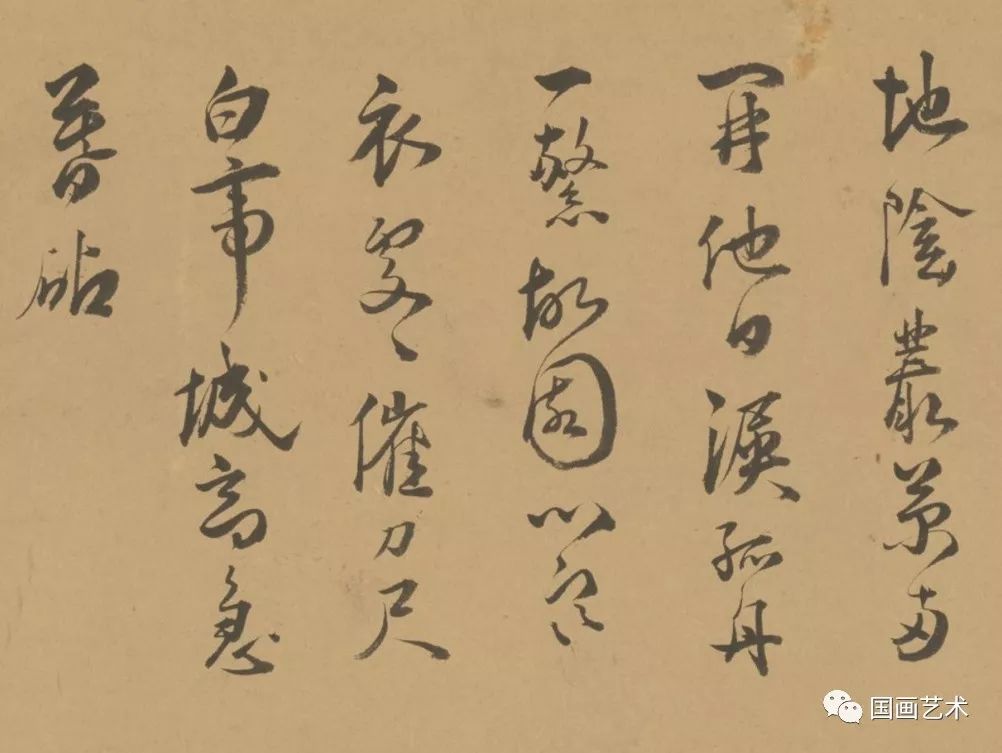 地陰叢菊両
開他日淚孤舟
一繫故園心寒
衣處〻催刀尺
白帝城高急
暮砧
国画艺术